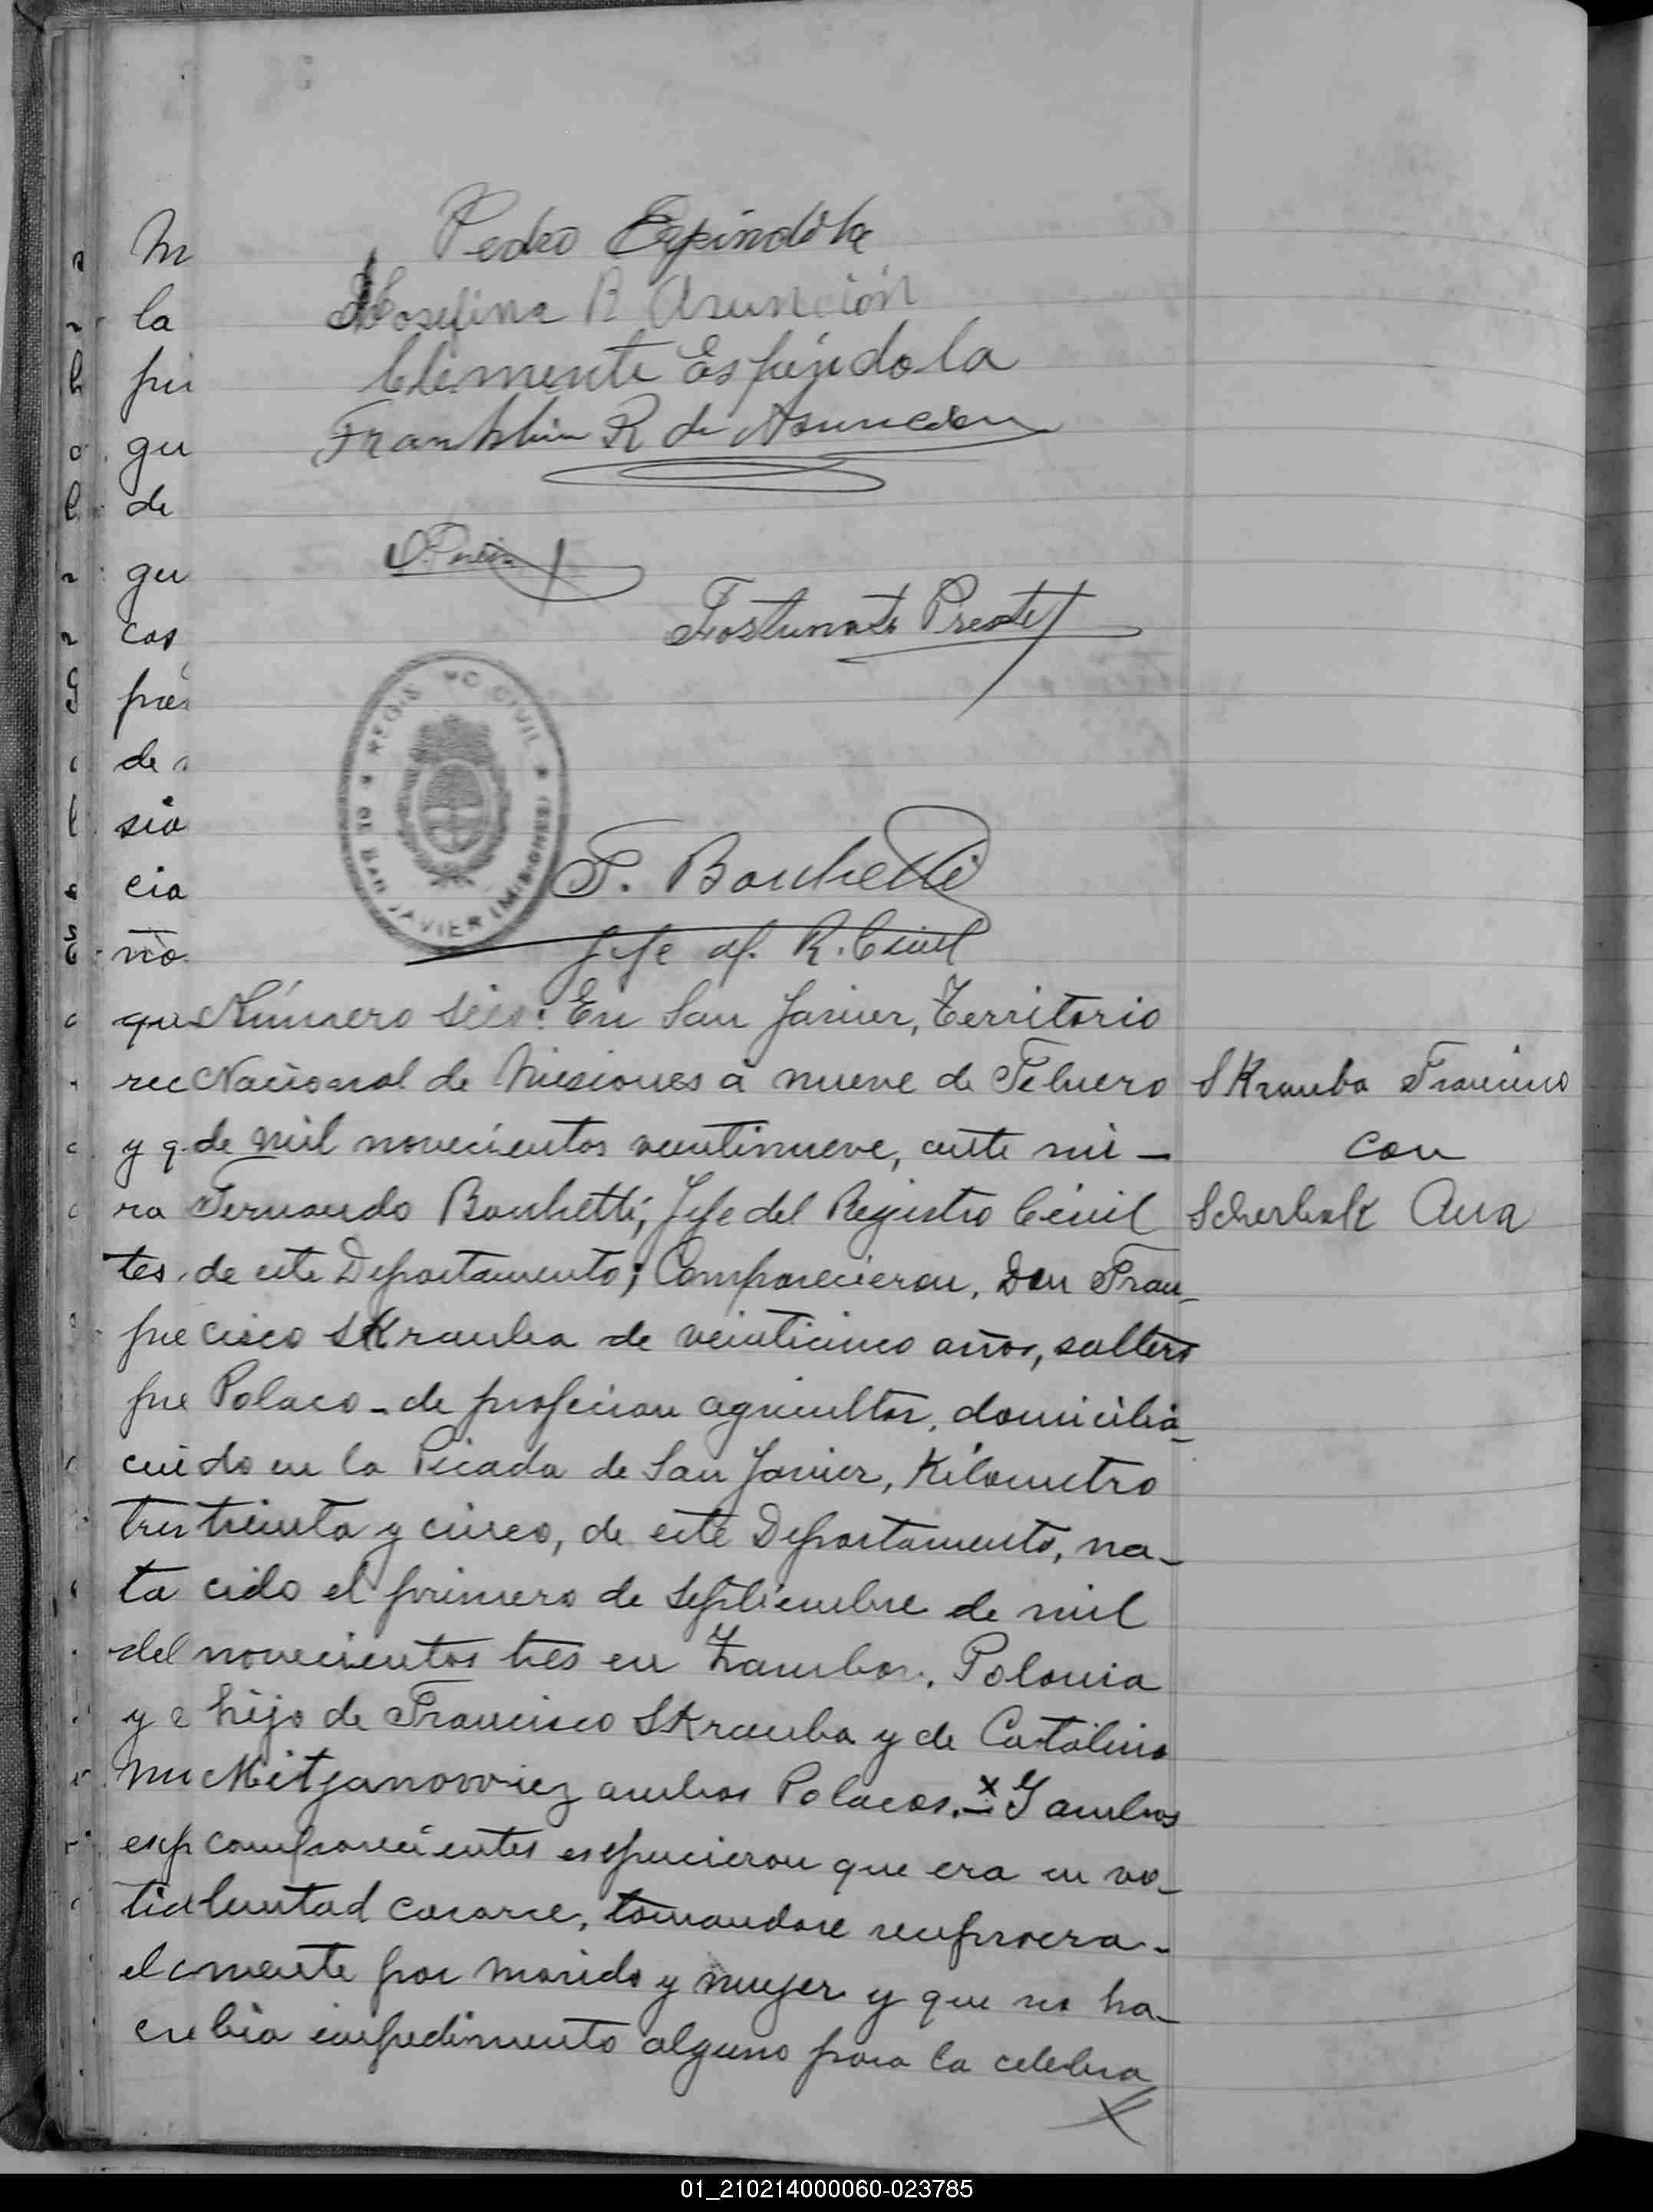 Pedro Espíndola
Josefina R Asunción
Clemente Espíndola
Franklin R de Asuncion
Fortunato Prestes
REGISTRO CIVIL
DE SAN JAVIER (MISIONES)
F. Bonchetti
Jefe of. R. Civil
Número seis: En San Javier, Territorio
Nacional de Misiones a nueve de Febrero
de mil novecientos veintinueve, ante mi -
Fernando Bonchetti, Jefe del Registro Civil
de este Departamento; Comparecieron, Don Fran-
cisco SKramba de veinticinco años, soltero
Polaco - de profecion agricultor, domicilia-
do en la Picada de San Javier, Kilometro
treinta y cinco, de este Departamento, na-
cido el primero de Septiembre de mil
novecientos tres en Zambor. Polonia
hijo de Francisco SKramba y de Catalina
Mitjanowiez ambos Polacos. x Y ambos
comparecientes espucieron que era su vo-
luntad casarse, tomandose reciproca-
mente por marido y mujer y que no ha-
bia impedimento alguno para la celebra
SKramba Francisco
con
Scherbak Ana
M
la
pri
gu
de
gu
cas
pres
de
sio
cia
ño
qu
rec
y q
ra
tes
pre
pre
cui
tres
ta
del
y e
mu
exp
tid
el c
en
01_210214000060-023785